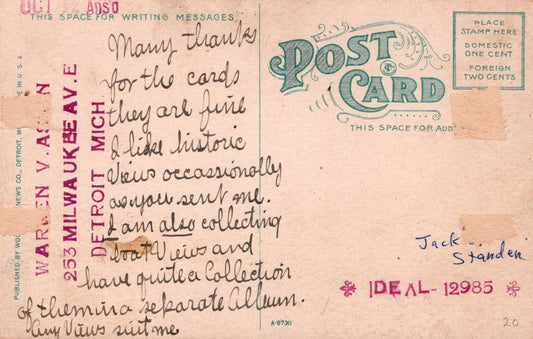 OCT 12 ADSO
THIS SPACE FOR WRITING MESSAGES
Many thanks
for the cards
they are fine
I like historic
Views occassionally
as you sent me.
I am also collecting
boat Views and
have quite a Collection
of them in a separate Album.
any Views suit me
WARREN V. A
253 MILWAUKEE AV. E
DETROIT MICH.
NEWS CO., DETROIT,
MADE IN U.S.A.
PUBLISHED BY
POST CARD
THIS SPACE FOR ADD
PLACE
STAMP HERE
DOMESTIC
ONE CENT
FOREIGN
TWO CENTS
Jack
Standen
* IDEAL-12985 *
A-8730
20